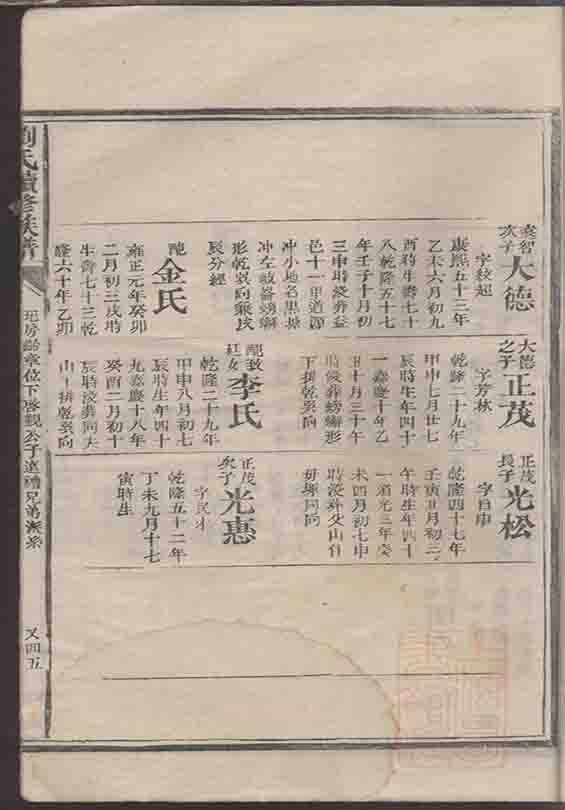 次子
大德
字紋超
康熙五十三年
乙未六月初九
酉時生壽七十
八乾隆五十七
年壬子十月初
三申時沒葬益
邑十一里道源
冲小地名黑塘
冲左岐螃蠏
形乾巽向
辰分經
金氏
雍正元年癸卯
二月初三戌時
生壽七十三乾
隆六十年乙卯
大德
之子
正茂
字芳林
乾隆二十九年
甲申七月廿七
辰時生年四十
一嘉慶十年乙
丑十月三十午
時沒葬螃蠏形
下排乾巽向
李氏
乾隆二十九年
甲申八月初七
辰時生年四十
九嘉慶十八年
癸酉二月初十
辰時沒葬同夫
山下排乾巽向
正茂
長子
光松
乾隆四十七年
壬寅五月初三
午時生年四十
一道光三年癸
未四月初七申
時沒葬父山右
同向
正茂
次子
光惠
乾隆五十二年
丁未九月十七
寅時生
劉氏續修族譜
又四五